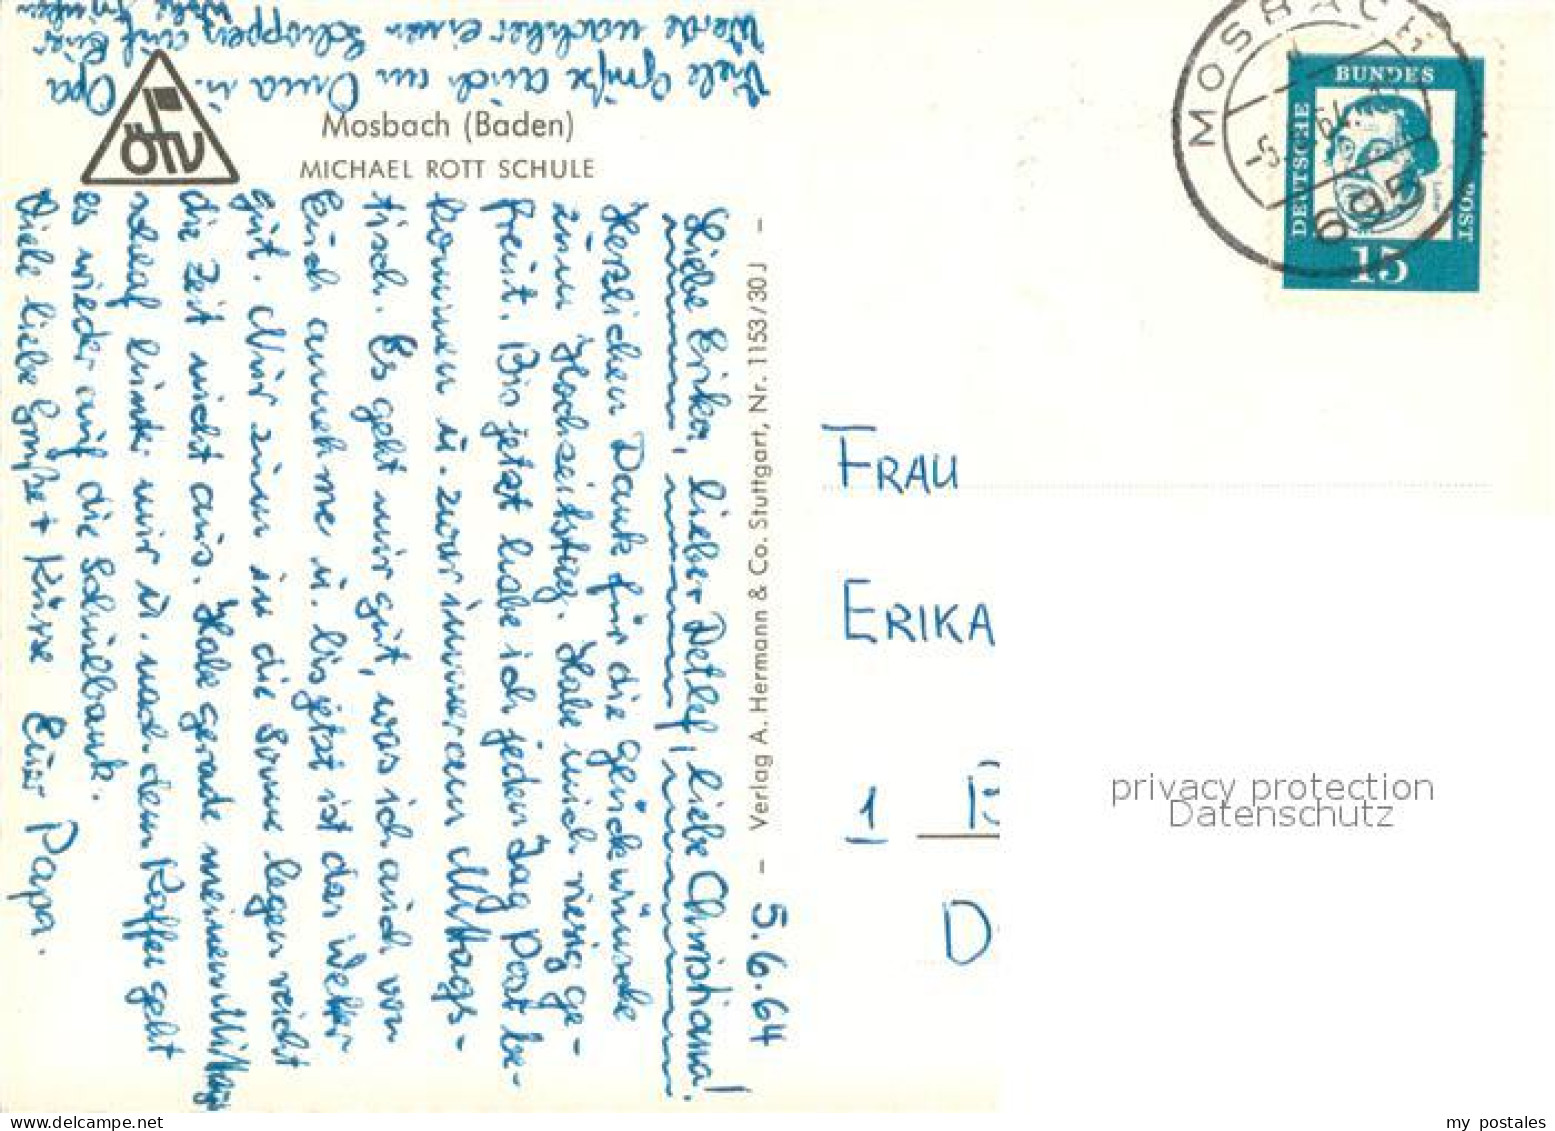 5.6.64
Liebe Erika, lieber Detlef, liebe Christiana!
Herzlichen Dank für die Glückwünsche
zum Hochzeitstag. Habe mich riesig ge-
freut. Bis jetzt habe ich jeden Tag Post be-
kommen u. zwar immer am Mittags-
tisch. Es geht mir gut, was ich auch von
Euch annehme u. bis jetzt ist das Wetter
gut. Nur zum in die Sonne legen reicht
die Zeit nicht aus. Habe gerade meinen Mittag
schlaf hinter mir u. nach dem Kaffee geht
es wieder auf die Schulbank.
Viele liebe Grüße + Küsse Euer Papa.
Viele Grüße auch an Oma u. Opa
Werde nachher einen Schoppen auf Euer
Wohl trinken
Mosbach (Baden)
MICHAEL ROTT SCHULE
Verlag A. Hermann & Co. Stuttgart, Nr. 1153/30 J
MOSBACH
695
DEUTSCHE
BUNDES
POST
Luther
15
FRAU
ERIKA
1
D
privacy protection
Datenschutz
my postales